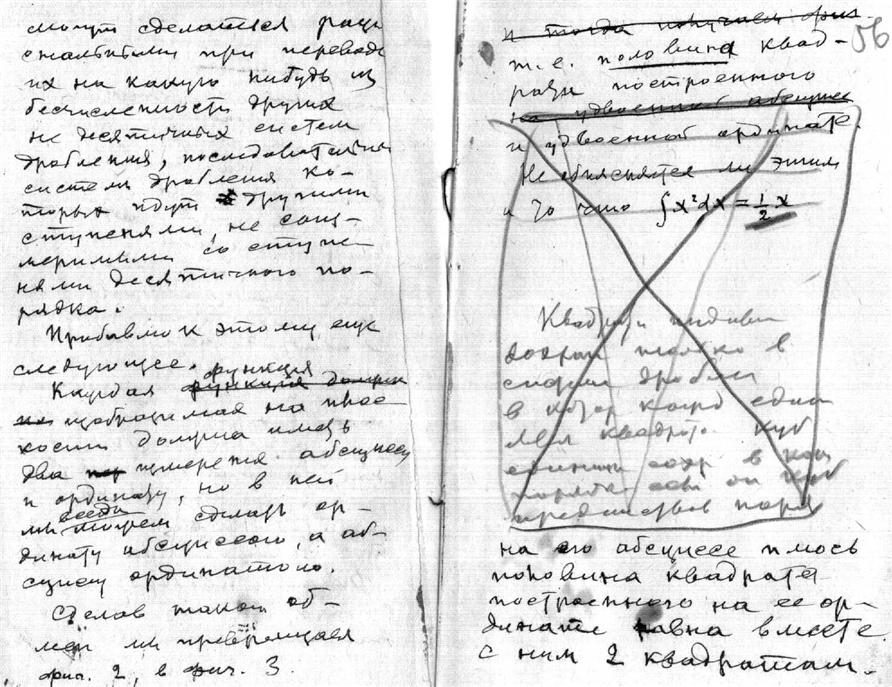 могут сделаться раци
при переводе
их на какую нибудь из
бесчисленности других
не десятичных систем
дробления, последовательная
система дробления ко-
торых идут другими
ступенями, не соиз-
меримыми со ступе
нями десятичного по-
рядка.
Прибавлю к этому еще
следующее.
функция
Каждая функция должна
изображаемая на плос
кости должна иметь
два измерения абсциссу
и ординату, но в ней
всегда
мы можем сделать ор-
динату абсциссою, а аб-
сциссу ординатою.
Сделав такой об-
мен мы превращаем
фиг. 2, в фиг. 3.
56
и тогда получаем фиг.
т.е. половина квад-
рата построенного
на удвоенной абсциссе
и удвоенной ординате.
Не объясняется ли этим
и то что ∫x²dx = 1/2 x
Квадрат
только в
дробле
в когда
квадрат. Куб
единицы
порядке если он куб
на его абсциссе плюсь
половина квадрата
построенного на ее ор-
динате равна вместе
с ним 2 квадратам.